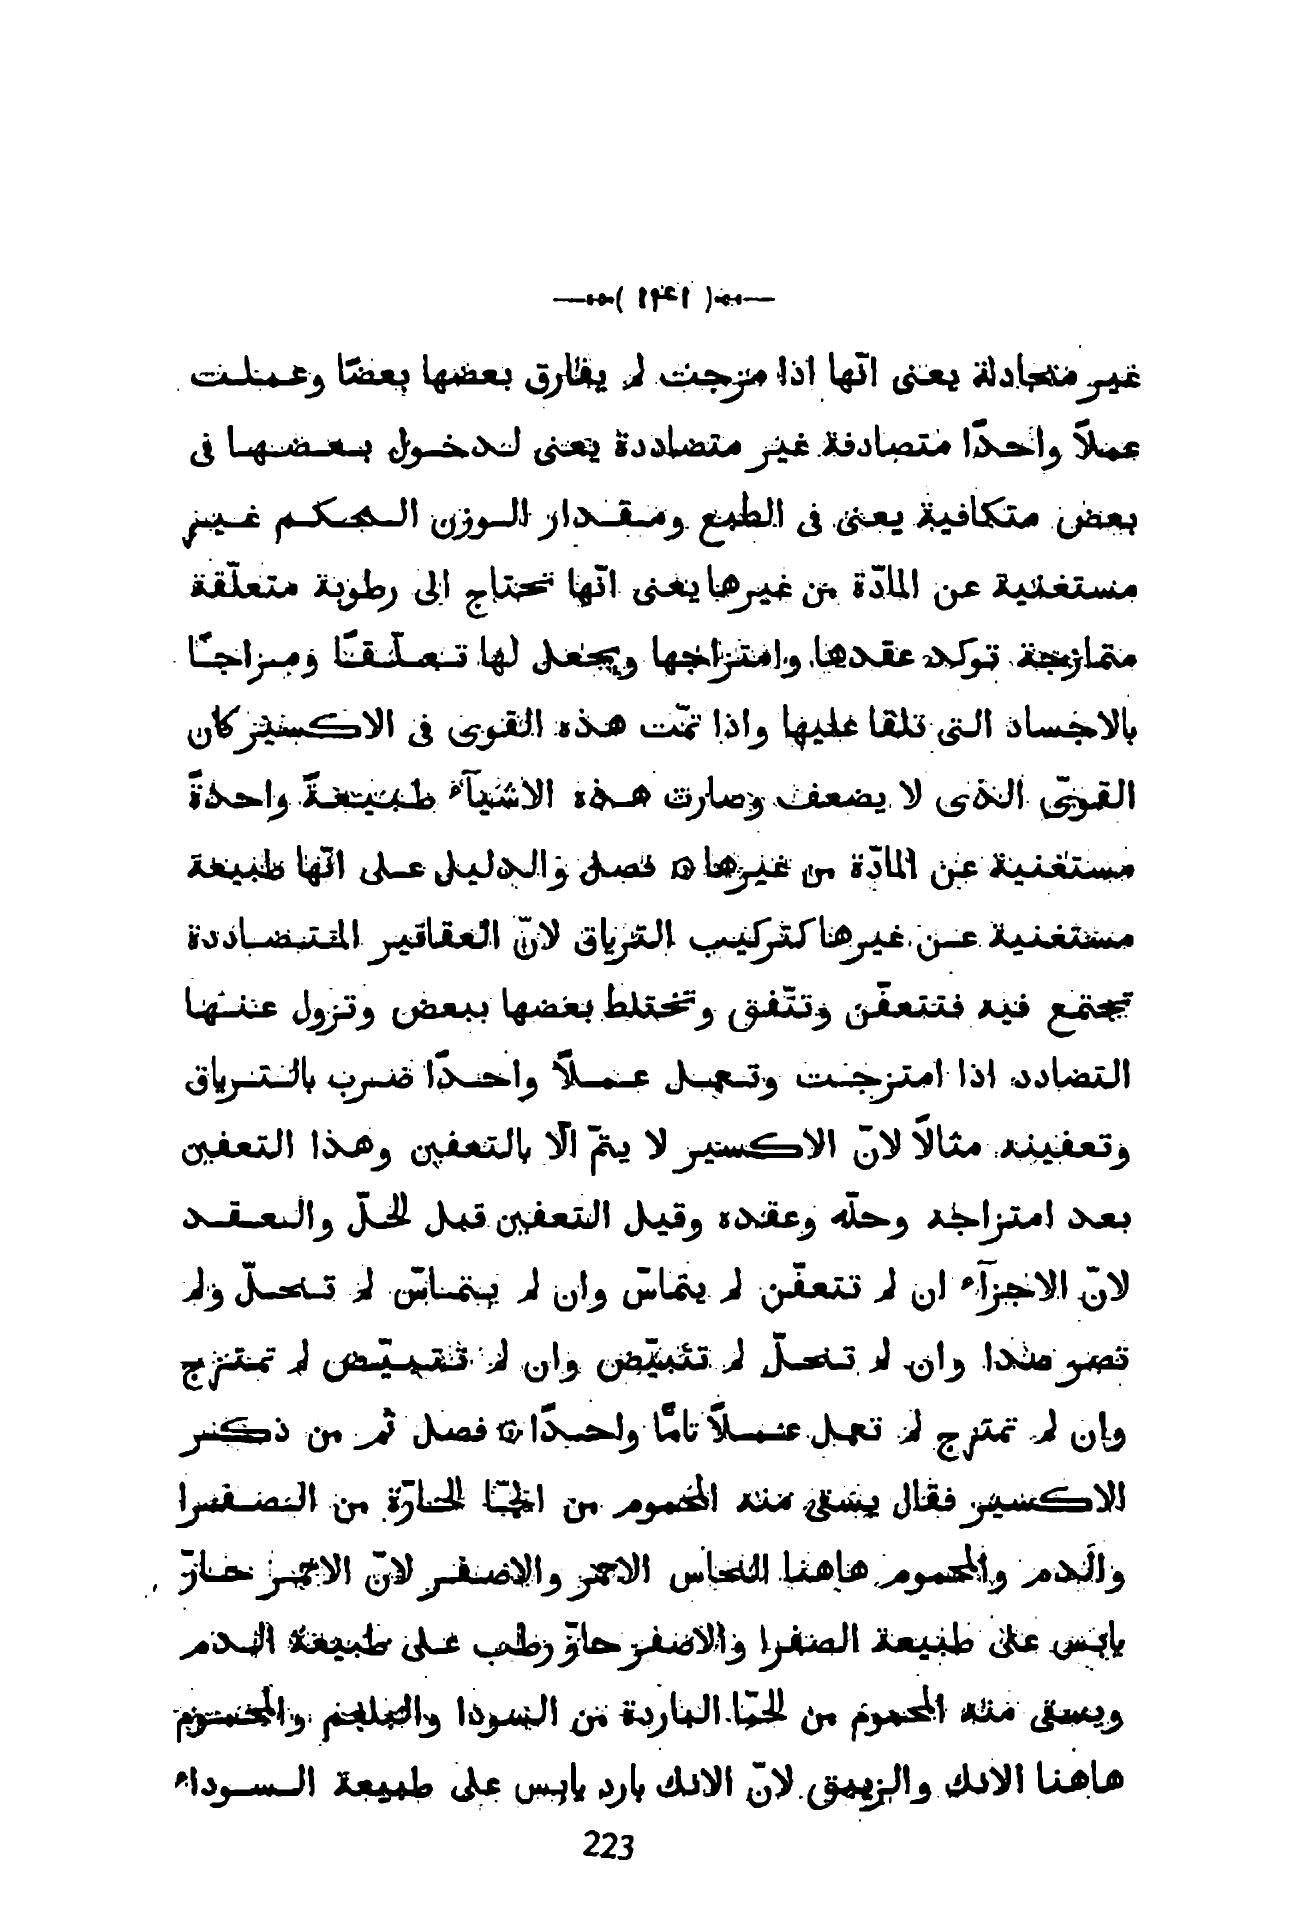 ( ١٤١ )
غير متجادلة يعنى انّها اذا مزجت لم يفارق بعضها بعضًا وعملت
عملاً واحدًا متصادفة غير متضاددة يعنى لدخول بعضها فى
بعض متكافية يعنى فى الطبع ومقدار الوزن المحكم غير
مستغنية عن المادّة من غيرها يعنى انّها تحتاج الى رطوبة متعلّقة
متمازجة توكد عقدها وامتزاجها ويجعل لها تعلّقًا ومزاجًا
بالاجساد التى تلقا عليها واذا تمّت هذه القوى فى الاكسير كان
القوىّ الذى لا يضعف وصارت هذه الاشيآء طبيعةً واحدةً
مستغنية عن المادّة من غيرها ۞ فصل والدليل على انّها طبيعة
مستغنية عن غيرها كتركيب الترياق لانّ العقاقير المتضاددة
تجتمع فيه فتتعفّن وتتّفق وتختلط بعضها ببعض وتزول عنها
التضادد اذا امتزجت وتعمل عملاً واحدًا ضرب بالترياق
وتعفينه مثالاً لانّ الاكسير لا يتمّ الّا بالتعفين وهذا التعفين
بعد امتزاجه وحلّه وعقده وقيل التعفين قبل الحلّ والعقد
لانّ الاجزآء ان لم تتعفّن لم يتماسّ وان لم يتماسّ لم تنحلّ ولم
تصر مندا وان لم تنحلّ لم تتبيّض وان لم تتبيّض لم تمتزج
وان لم تمتزج لم تعمل عملاً تامًّا واحدًا ۞ فصل ثم من ذكر
الاكسير فقال يسقى منه المحموم من الحمّا الحارّة من الصفرا
والدم والمحموم هاهنا النحاس الاحمر والاصفر لانّ الاحمر حارّ
يابس على طبيعة الصفرا والاصفر حارّ رطب على طبيعة الدم
ويسقى منه المحموم من الحمّا الباردة من السودا والبلغم والمحموم
هاهنا الانك والزيبق لانّ الانك بارد يابس على طبيعة السوداء
223